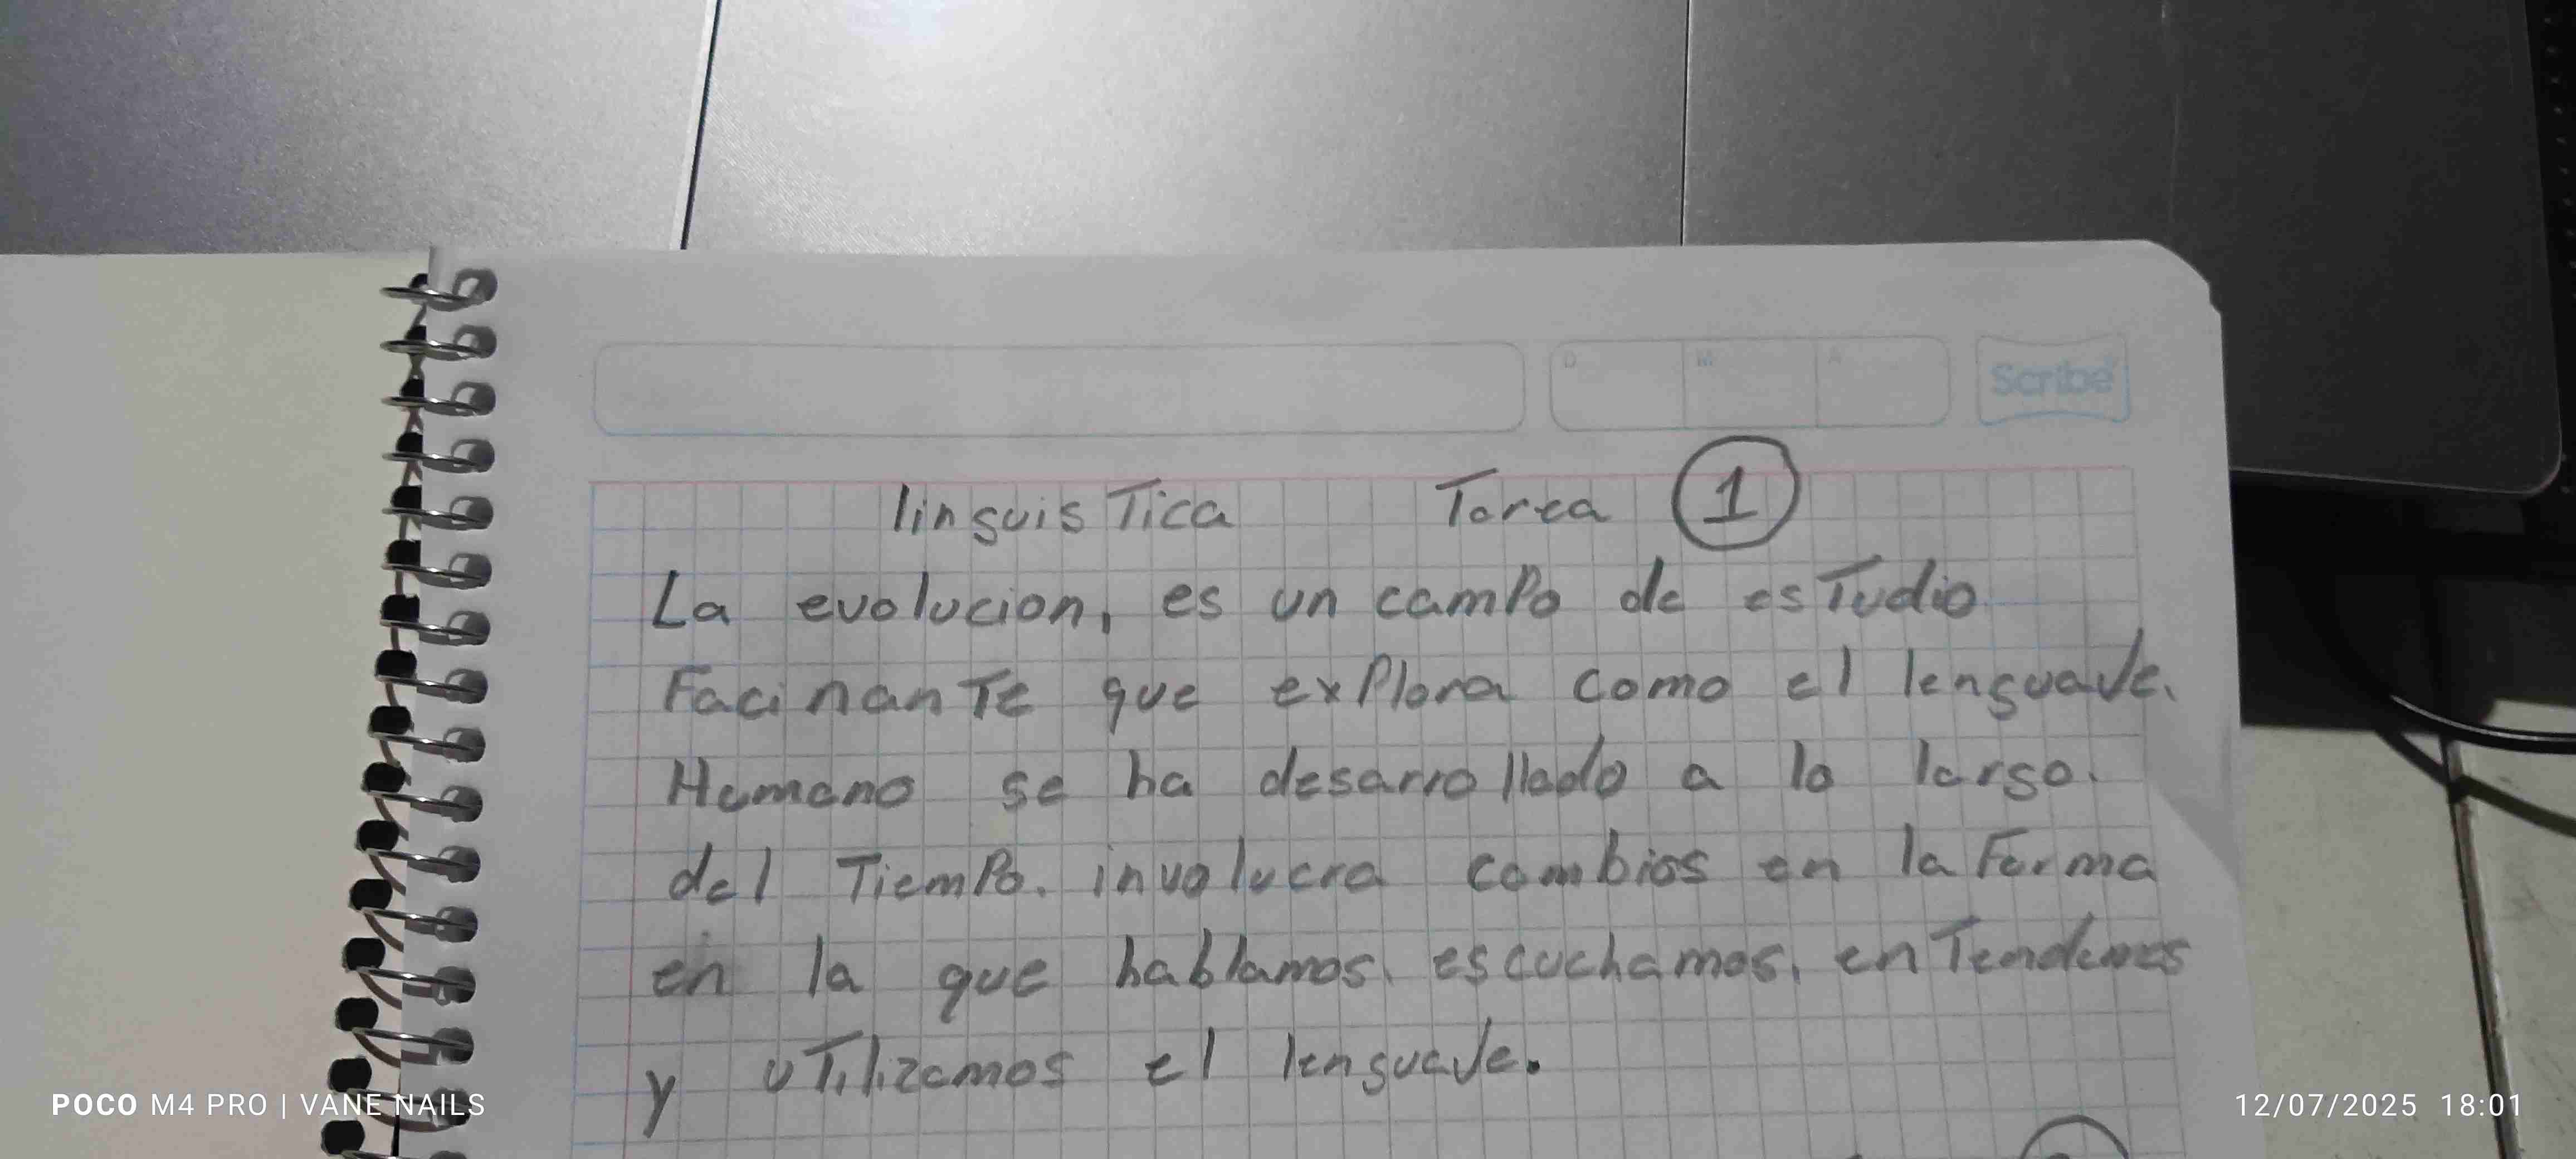 D M A Scribe
linguisTica Tarea 1
La evolucion, es un campo de esTudio
FacinanTe que explora como el lenguaJe.
Humano se ha desarrollado a lo largo.
del Tiempo. involucra cambios en la Forma
en la que hablamos, escuchamos, enTendemos
y uTilizamos el lenguaJe.
POCO M4 PRO | VANE NAILS 12/07/2025 18:01